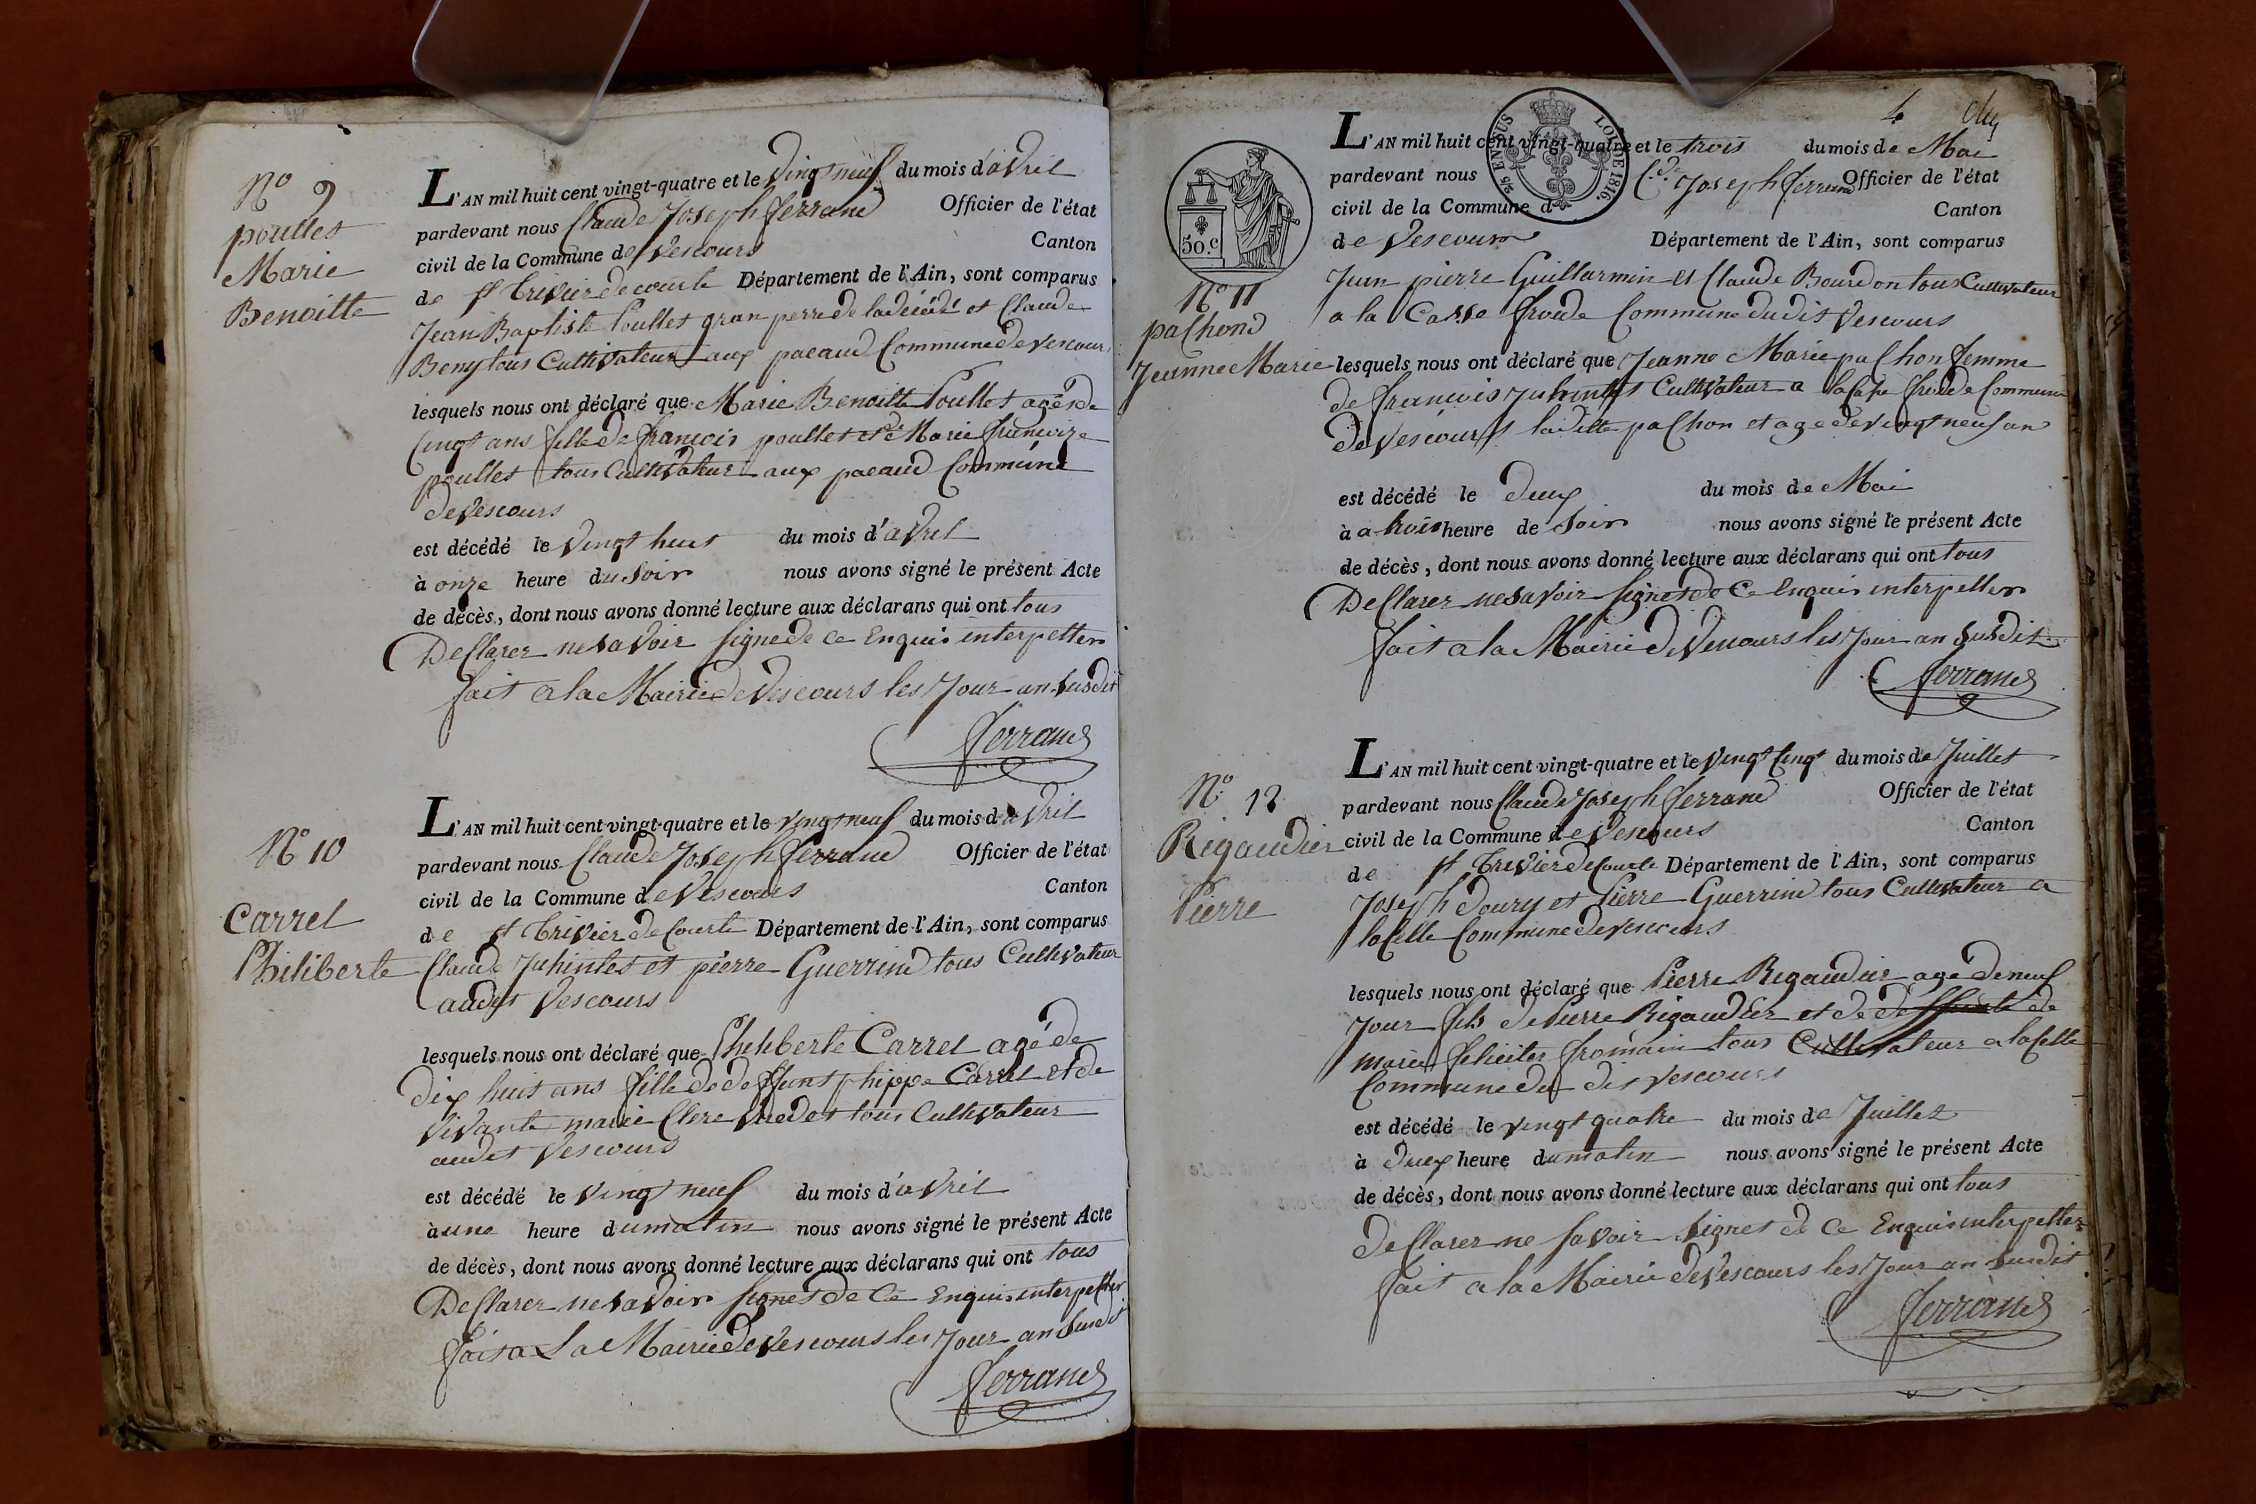 No 9
poullet
Marie
Benoitte
L'AN mil huit cent vingt-quatre et le vingt neuf du mois d'avril
pardevant nous Claude Joseph ferrand Officier de l'état
civil de la Commune de vescours Canton
de st trivier de courte Département de l'Ain, sont comparus
Jean Baptiste Poullet gran perre de la décédé et Claude
Beny tous Cultivateur aux pacaud Commune de vescours
lesquels nous ont déclaré que Marie Benoitte Poullet agée de
Cinqt ans fille de françois poullet et de Marie françoize
poullet tous Cultivateur aux pacaud Commune
de vescours
est décédé le vingt huit du mois d'avril
à onze heure du soir nous avons signé le présent Acte
de décès, dont nous avons donné lecture aux déclarans qui ont tous
Declarer ne savoir signe de ce Enquis interpeller
fait a la Mairie de vescours les Jour an susdit
ferrand
No 10
Carrel
Philiberte
L'AN mil huit cent vingt-quatre et le vingt neuf du mois d avril
pardevant nous Claude Joseph ferrand Officier de l'état
civil de la Commune de vescours Canton
de st trivier de Courte Département de l'Ain, sont comparus
Claude Juhintet et pierre Guerrind tous Cultivateur
audit vescours
lesquels nous ont déclaré que Philiberte Carrel agé de
dix huit ans fille de deffunt phippe Carrel et de
vivante marie Clere tous Cultivateur
audit vescours
est décédé le vingt neuf du mois d'avril
à une heure du matin nous avons signé le présent Acte
de décès, dont nous avons donné lecture aux déclarans qui ont tous
Declarer ne savoir signet de Ce Enquis interpeller
fait a La Mairie de vescours les Jour an susdit
ferrand
4
50.c
25 EN SUS
LOI DE 1816.
No 11
pachond
Jeanne Marie
L'AN mil huit cent vingt-quatre et le trois du mois de Mai
pardevant nous C.de Joseph ferrand Officier de l'état
civil de la Commune d Canton
de vescours Département de l'Ain, sont comparus
Jean pierre Guillarmin et Claude Bourdon tous Cultivateur
a la Casse froide Commune dudit vescours
lesquels nous ont déclaré que Jeanne Marie pachon femme
de françois Juhintet Cultivateur a la Casse froide Commune
de vescours laditte pachon et age de vingt neuf an
est décédé le deux du mois de Mai
à a trois heure de soir nous avons signé le présent Acte
de décès, dont nous avons donné lecture aux déclarans qui ont tous
Declarer ne savoir signet de Ce Enquis interpeller
fait a la Mairie de vescours les Jour an susdit
ferrand
No 12
Rigaudier
Pierre
L'AN mil huit cent vingt-quatre et le vingt Cinqt du mois de Juillet
pardevant nous Claude Joseph ferrand Officier de l'état
civil de la Commune de vescours Canton
de st trivier de Courte Département de l'Ain, sont comparus
Joseph doury et Pierre Guerrind tous Cultivateur a
la Celle Commune de vescours
lesquels nous ont déclaré que Pierre Rigaudier age de neuf
Jour fils de Pierre Rigaudier et de deffunte de
marie feliciter fromain tous Cultivateur a la Celle
Commune du dit vescours
est décédé le vingt quatre du mois de Juillet
à deux heure du matin nous avons signé le présent Acte
de décès, dont nous avons donné lecture aux déclarans qui ont tous
declarer ne savoir signet de Ce Enquis interpeller
fait a la Mairie de vescours les Jour an susdit
ferrand